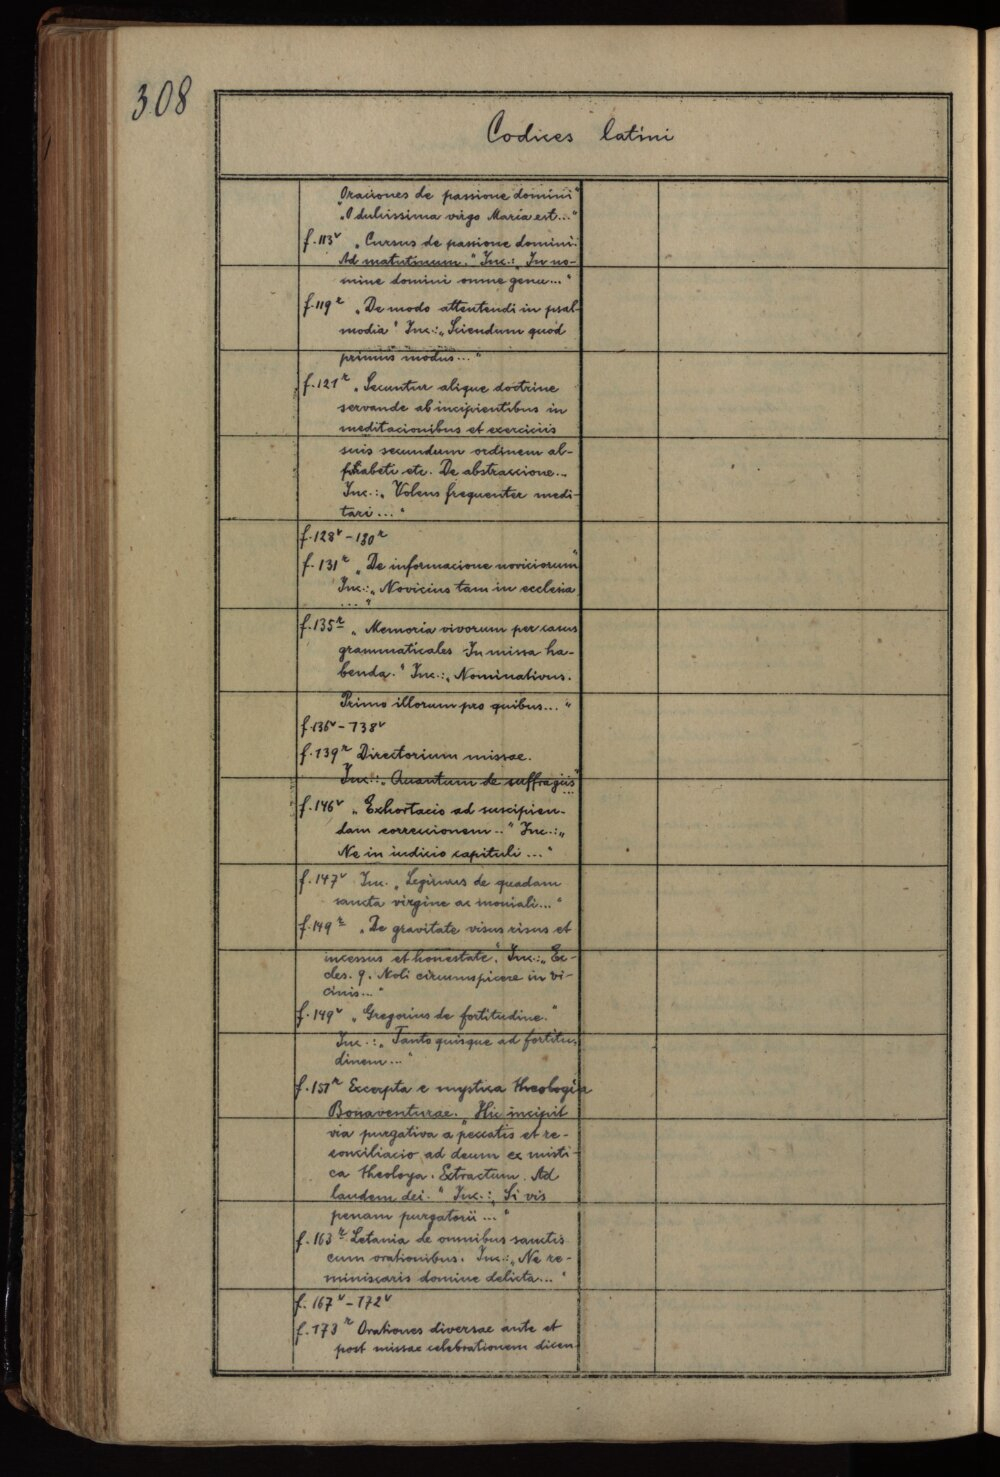 308
Codices latini
Oraciones de passione domini"
"O dulcissima virgo Maria est..."
f. 113v „Cursus de passione domini.
Ad matutinum." Inc.: „In no-
mine domini omne genu..."
f. 119r „De modo attentendi in psal-
modia" Inc.: „Sciendum quod
primus modus..."
f. 121r „Secuntur alique doctrine
servande ab incipientibus in
meditacionibus et exerciciis
suis secundum ordinem al-
phabeti etc. De abstraccione...
Inc.: „Volens frequenter medi-
tari..."
f. 128v - 130r
f. 131r „De informacione noviciorum"
Inc.: „Novicius tam in ecclesia
..."
f. 135r „Memoria vivorum per casus
grammaticales In missa ha-
benda." Inc.: „Nominativus.
Primo illorum pro quibus..."
f. 136v - 138v
f. 139r Directorium missae.
Inc.: „Quantum de suffragiis"
...
f. 146v „Exhortacio ad suscipien-
dam correccionem.." Inc.: „
Ne in iudicio capituli..."
f. 147v Inc. „Legimus de quadam
sancta virgine ac moniali..."
f. 149r „De gravitate visus risus et
incessus et honestate." Inc.: „Ec-
cles. 9. Noli circumspicere in vi-
cinis..."
f. 149v „Gregorius de fortitudine."
Inc.: „Tanto quisque ad fortitu-
dinem..."
f. 151r Excerpta e mystica theologia
Bonaventurae. „Hic incipit
via purgativa a peccatis et re-
conciliacio ad deum ex misti-
ca theologa. Extractum. Ad
laudem dei." Inc.: „Si vis
penam purgatorii..."
f. 163r Letania de omnibus sanctis
cum orationibus. Inc.: „Ne re-
miniscaris domine delicta..."
f. 167v - 172v
f. 173r Orationes diversae ante et
post missae celebrationem dicen-